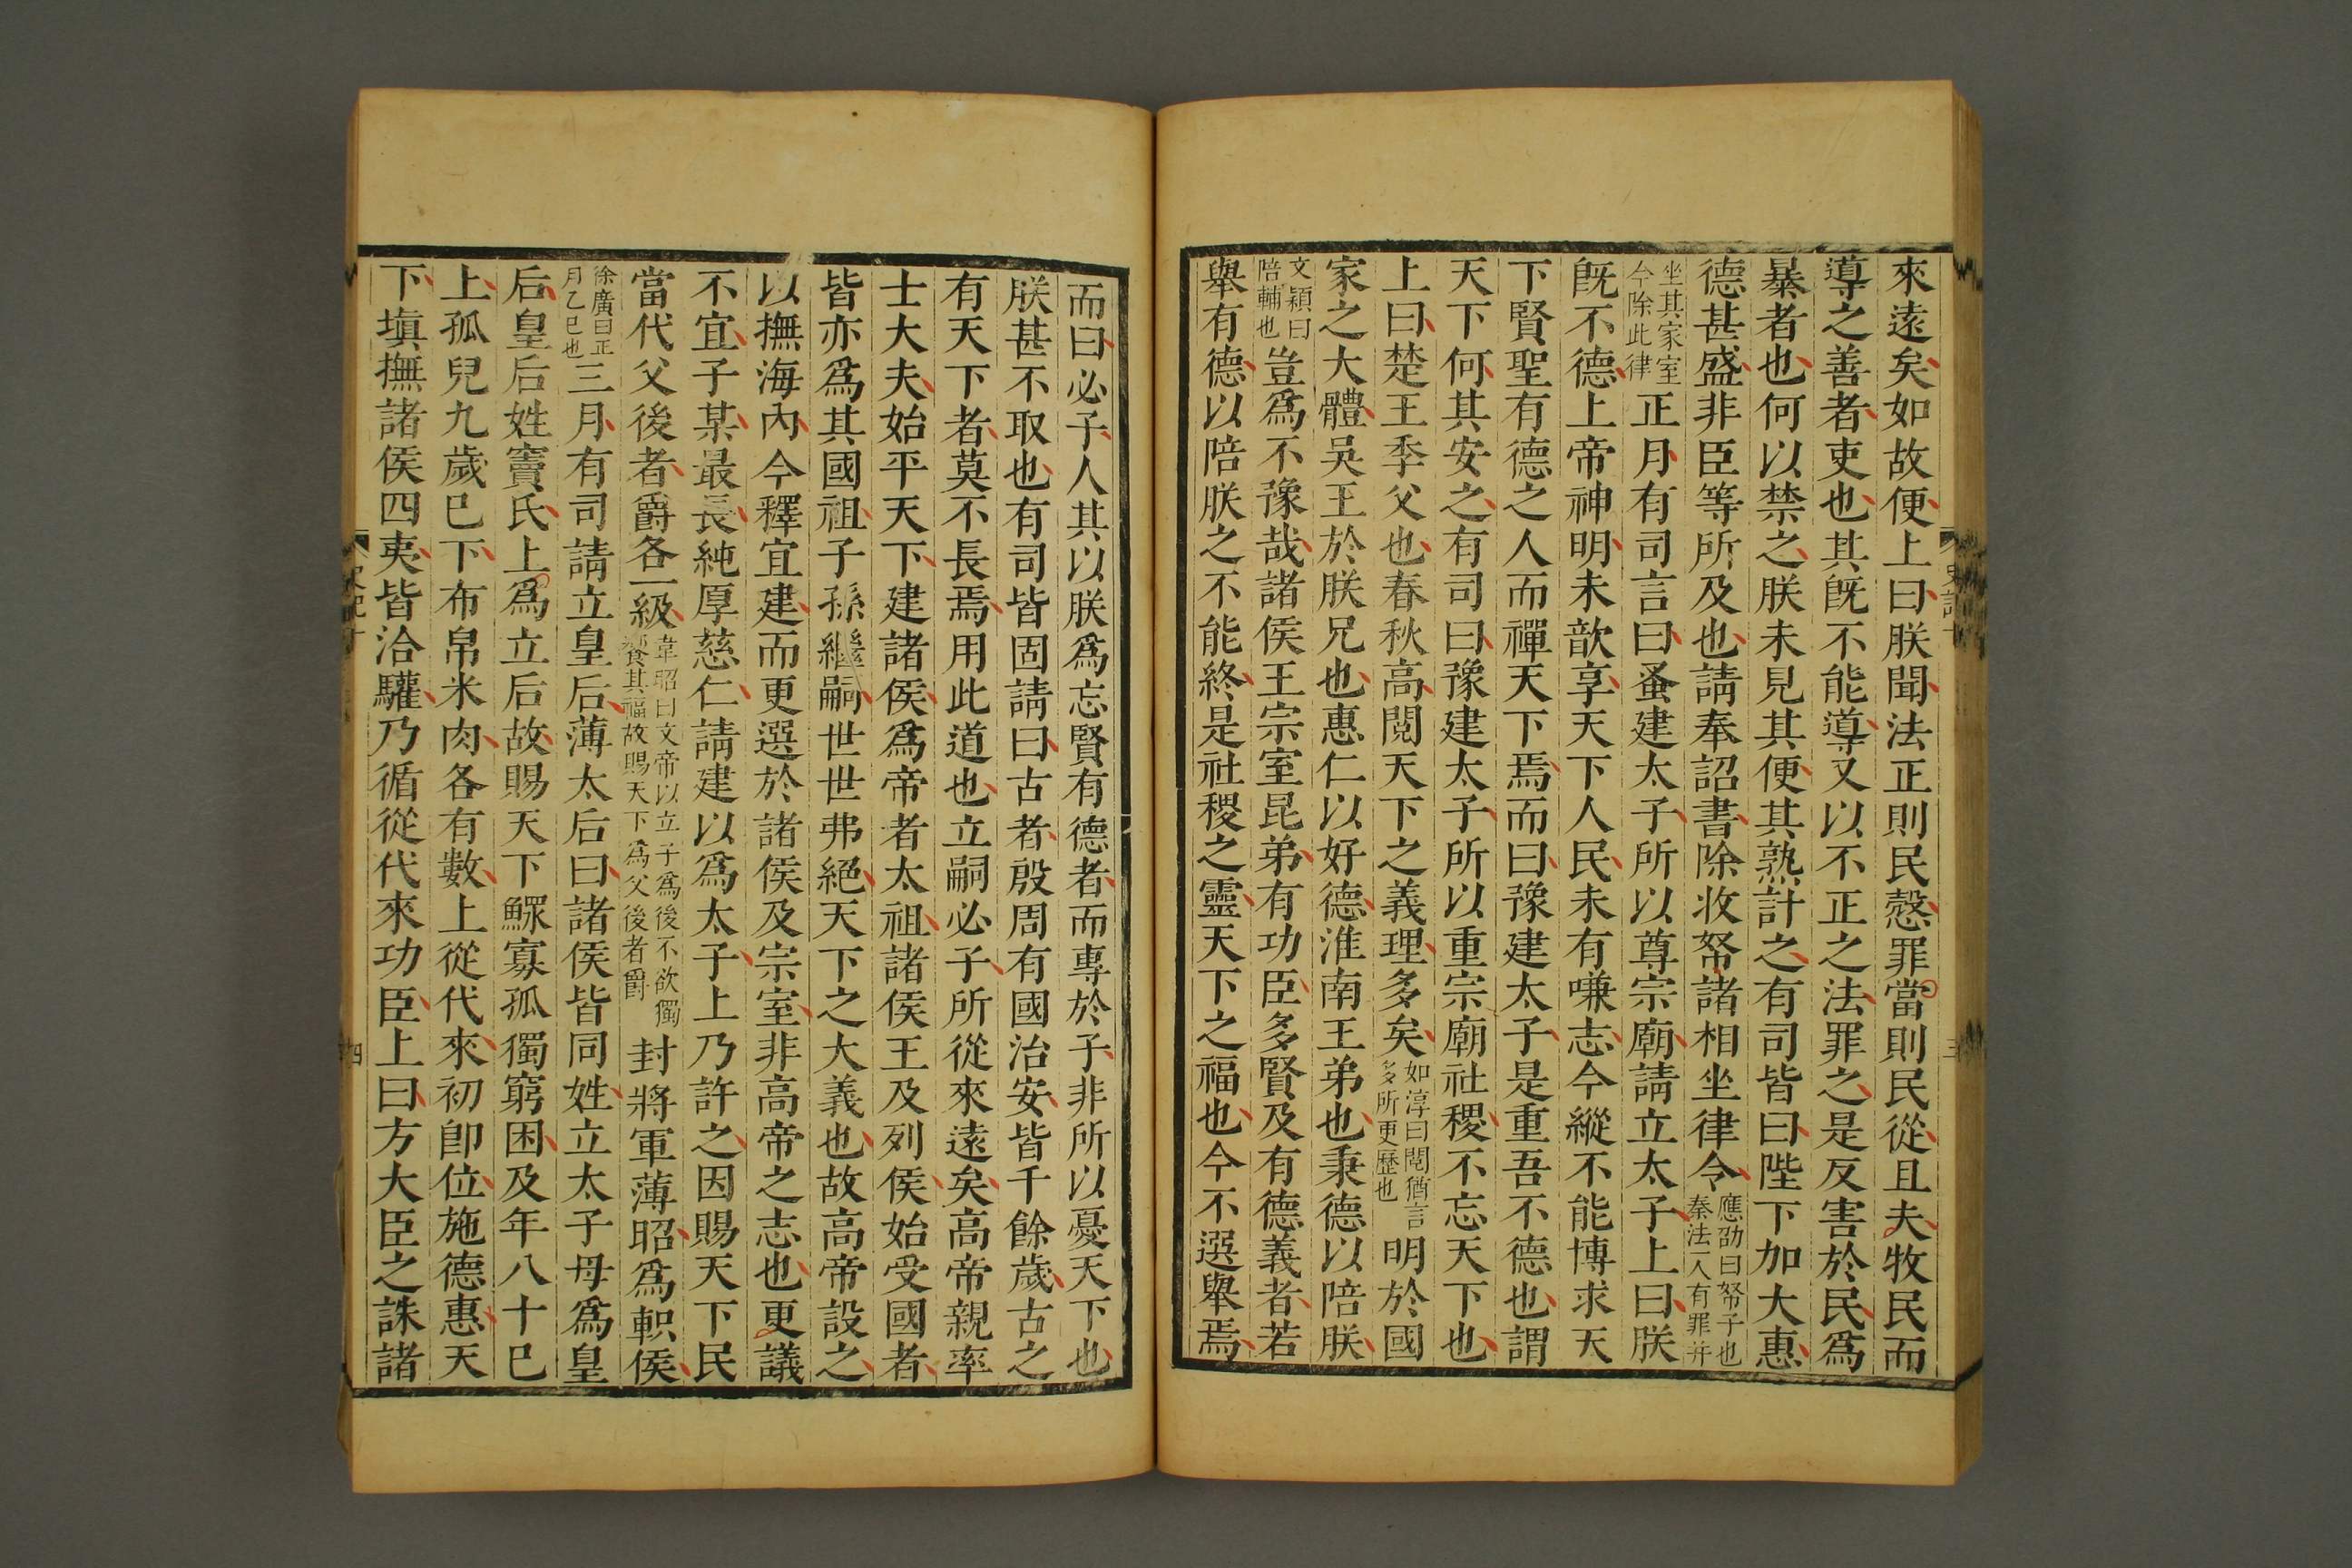 來遠矣如故便上曰朕聞法正則民慤罪當則民從且夫牧民而
導之善者吏也其旣不能導又以不正之法罪之是反害於民爲
暴者也何以禁之朕未見其便其熟計之有司皆曰陛下加大惠
德甚盛非臣等所及也請奉詔書除收帑諸相坐律令應劭曰帑子也秦法一人有罪并
坐其家室今除此律正月有司言曰蚤建太子所以尊宗廟請立太子上曰朕
旣不德上帝神明未歆享天下人民未有嗛志今縱不能博求天
下賢聖有德之人而禪天下焉而曰豫建太子是重吾不德也謂
天下何其安之有司曰豫建太子所以重宗廟社稷不忘天下也
上曰楚王季父也春秋高閱天下之義理多矣如淳曰閱猶言多所更歷也明於國
家之大體吳王於朕兄也惠仁以好德淮南王弟也秉德以陪朕
文穎曰陪輔也豈爲不豫哉諸侯王宗室昆弟有功臣多賢及有德義者若
舉有德以陪朕之不能終是社稷之靈天下之福也今不選舉焉
而曰必子人其以朕爲忘賢有德者而專於子非所以憂天下也
朕甚不取也有司皆固請曰古者殷周有國治安皆千餘歲古之
有天下者莫不長焉用此道也立嗣必子所從來遠矣高帝親率
士大夫始平天下建諸侯爲帝者太祖諸侯王及列侯始受國者
皆亦爲其國祖子孫繼嗣世世弗絕天下之大義也故高帝設之
以撫海內今釋宜建而更選於諸侯及宗室非高帝之志也更議
不宜子某最長純厚慈仁請建以爲太子上乃許之因賜天下民
當代父後者爵各一級韋昭曰文帝以立子爲後不欲獨饗其福故賜天下爲父後者爵封將軍薄昭爲軹侯
徐廣曰正月乙巳也三月有司請立皇后薄太后曰諸侯皆同姓立太子母爲皇
后皇后姓竇氏上爲立后故賜天下鰥寡孤獨窮困及年八十已
上孤兒九歲已下布帛米肉各有數上從代來初卽位施德惠天
下塡撫諸侯四夷皆洽驩乃循從代來功臣上曰方大臣之誅諸
史記十
三
史記十
四